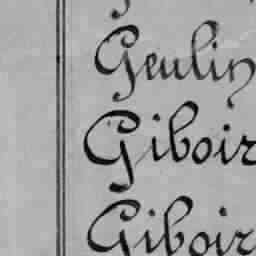 Geulin
Giboir
Giboir